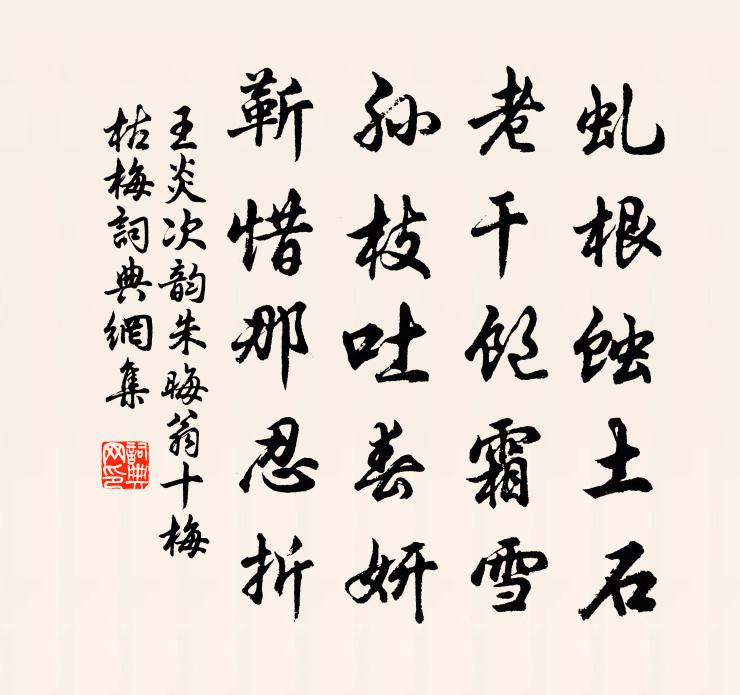 虬根蚀土石
老干饱霜雪
孙枝吐春妍
蕲惜那忍折
王炎次韵朱晦翁十梅
枯梅詞典網集
詞典网印